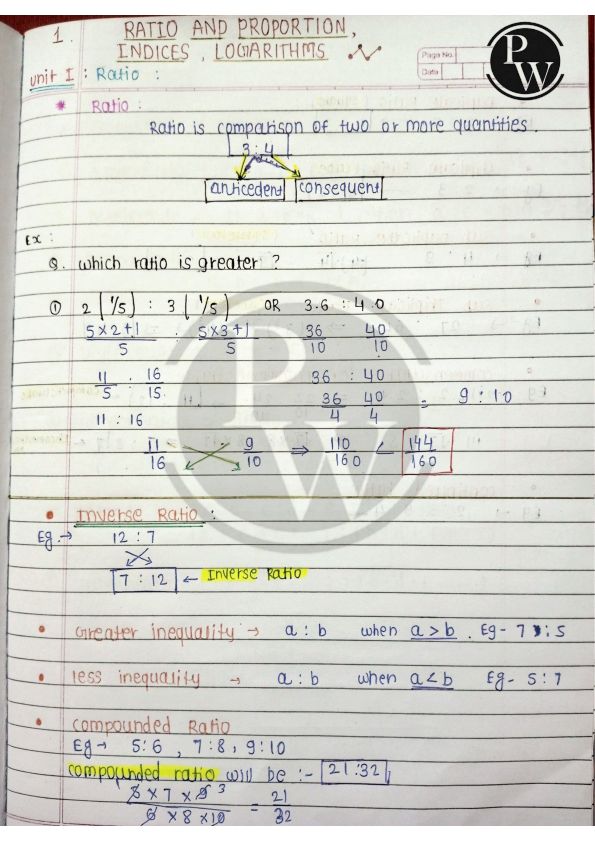 1. RATIO AND PROPORTION,
INDICES, LOGARITHMS
Page No.
Date
PW
Unit I : Ratio :
* Ratio :
Ratio is comparison of two or more quantities.
3 : 4
anticedent consequent
Ex :
Q. which ratio is greater ?
① 2 (1/5) : 3 (1/5) OR 3.6 : 4.0
5×2+1/5 : 5×3+1/5 36/10 40/10
11/5 : 16/15 36 : 40
36/4 40/4 = 9 : 10
11 : 16
11/16 9/10 ⇒ 110/160 < 144/160
• Inverse Ratio :
Eg. → 12 : 7
7 : 12 ← Inverse Ratio
• Greater inequality → a : b when a > b . Eg - 7 : 5
• less inequality → a : b when a < b Eg - 5 : 7
• compounded Ratio
Eg → 5:6 , 7:8 , 9:10
compounded ratio will be :- 21:32
5 × 7 × 9 3 / 6 × 8 × 10 = 21/32
PW